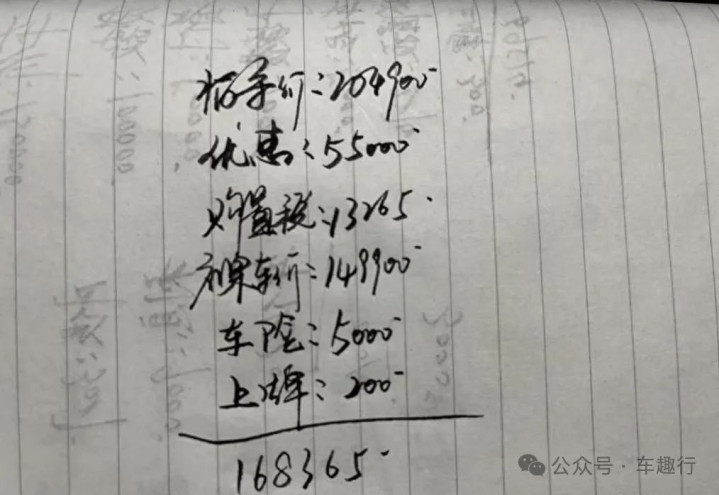 指导价:204900
优惠:55000
购置税:13265
裸车价:149900
车险:5000
上牌:200
168365
公众号·车趣行